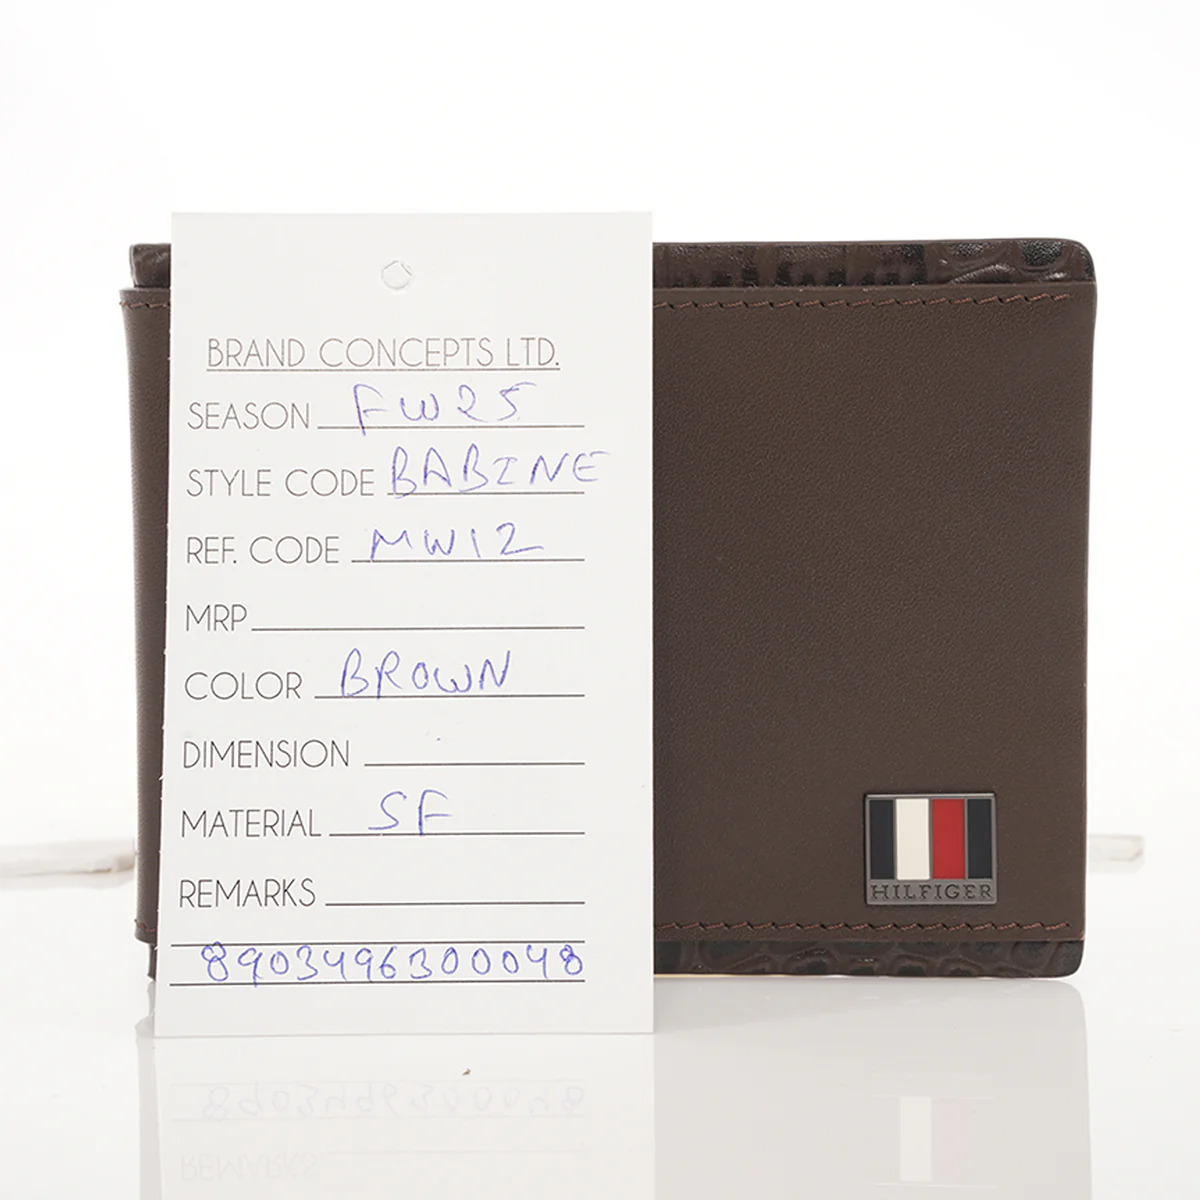 BRAND CONCEPTS LTD.
SEASON FW25
STYLE CODE BABINE
REF. CODE MW12
MRP
COLOR BROWN
DIMENSION
MATERIAL SF
REMARKS
8903496300048
HILFIGER